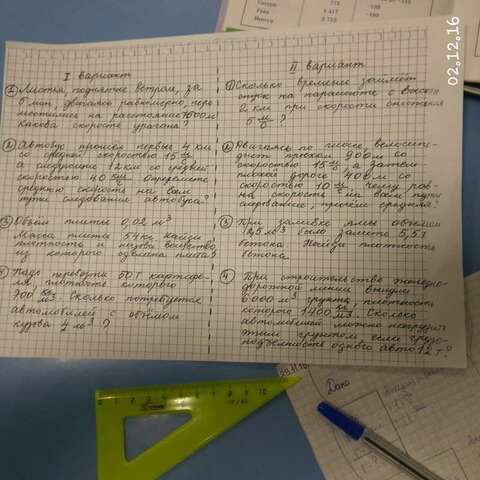 Сатурн
Уран
Нептун
02.12.16
I вариант
① Листья, поднятые ветром, за
5 мин, двигаясь равномерно, пере
местились на расстояние 7500 м
Какова скорость урагана?
② Автобус прошел первые 4 км
со средней скоростью 15 м/с
а следующие 12 км со средней
скоростью 40 Определите
среднюю скорость на всем
пути следования автобуса?
③ Объём плиты 0,02 м³
Масса плиты 54 кг. Найди
плотность и назови вещество,
из которого сделана плита?
4 Надо перевезти 50 т картофе-
ля, плотность которого
700 кг/м3. Сколько потребуется
автомобилей с объёмом
кузова 4 м³?
II вариант
① Сколько времени займёт
спуск на парашюте с высоты
2 км при скорости снижения
5 м/с?
② Двигаясь по шоссе, велосипе-
дист проехал 900 м со
скоростью 15 м/с, а затем по
плохой дороге 400 м со
скоростью 10 м/с. Чему рав-
на скорость на всем пути
следования, причём средняя?
③ При заливке ямы объёмом
2,5 м³ было залито 5,5 т
бетона. Найди плотность
бетона
④ При строительстве железно-
дорожной линии вынули
6000 м³ грунта, плотность
которого 1400 кг/м3. Сколько
автомобилей можно нагрузить
этим грунтом, если грузо-
подъёмность одного авто 12 т?
29.11.16
Дано